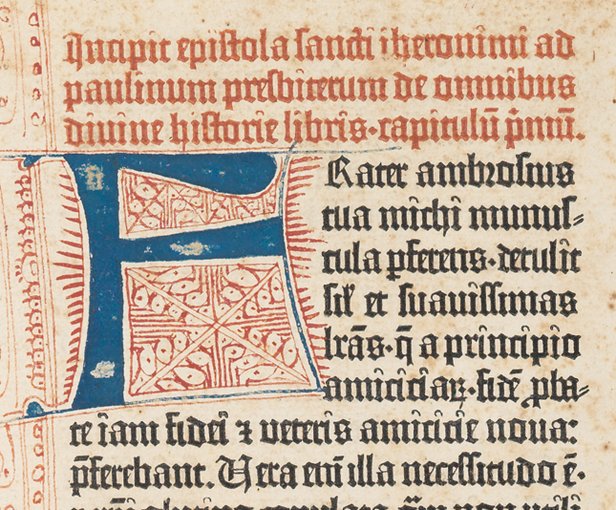 Incipit epistola sancti iheronimi ad
paulinum presbiterum de omnibus
divine historie libris·capitulū p̄mū.
FRater ambrosius
tua michi munus-
cula p̄ferens·detulit
sil̄ et suavissimas
lr̄as·q̄ a principio
amiciciaꝝ·fidē ꝓba-
te iam fidei ⁊ veteris amicicie nova:
p̄ferebant. Vera eni̅ illa necessitudo ē·